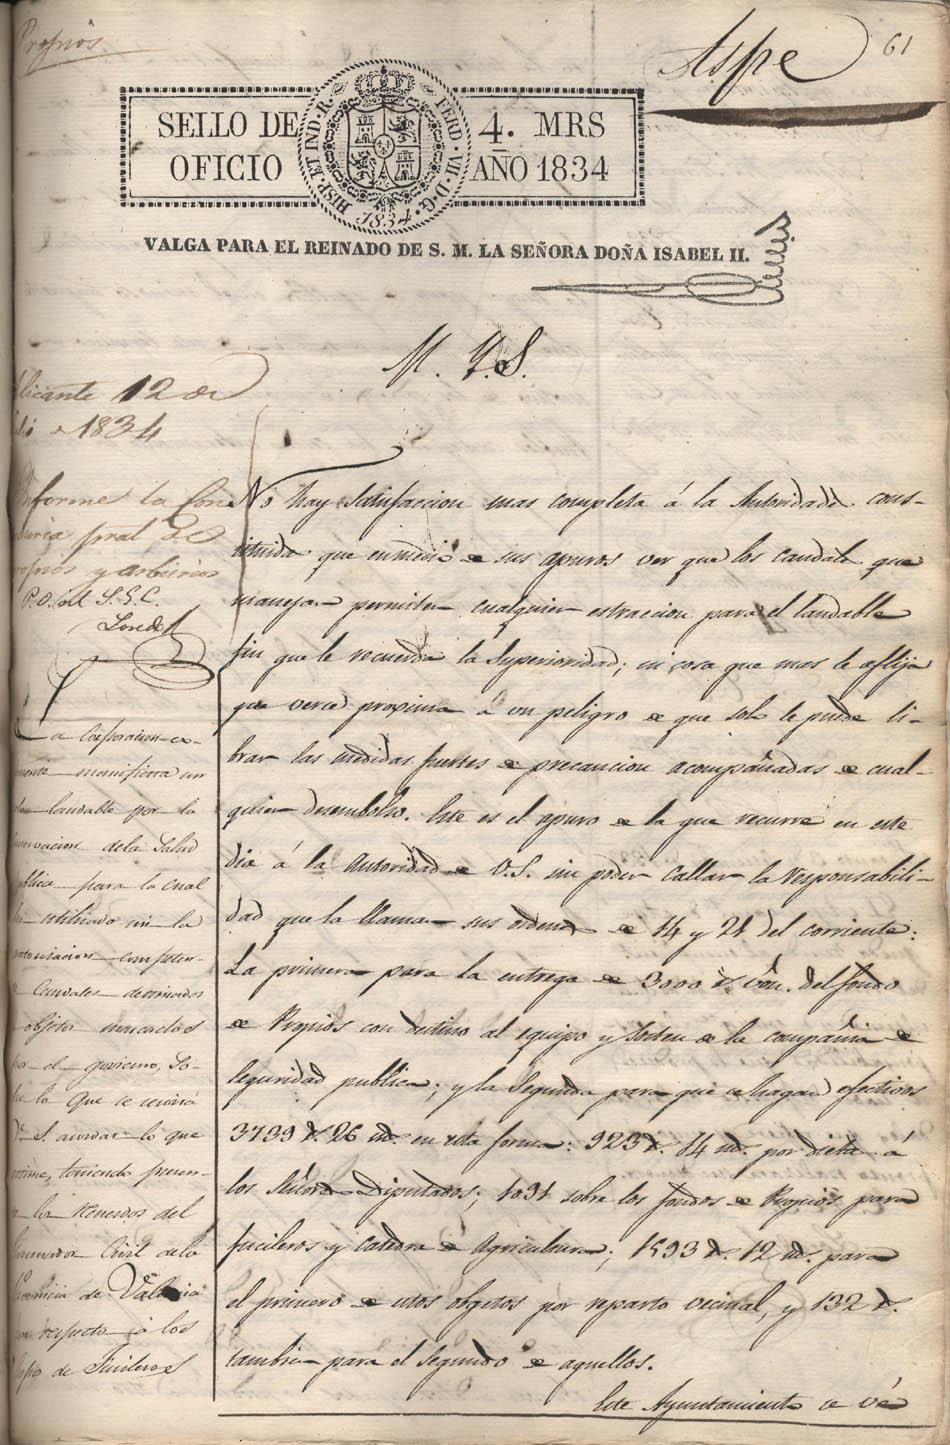 Propios
Aspe
61
SELLO DE OFICIO
4. MRS
AÑO 1834
HISP. ET IND. R. FERD. VII. D. G. 1834.
VALGA PARA EL REINADO DE S. M. LA SEÑORA DOÑA ISABEL II.
M. Y. S.
licante 12 de
1834
nforme la Con
duria pral de
ropios y arbitrios
P. O. del S. G. C.
No hay satisfaccion mas completa á la Autoridad cons-
tituida que enmedio de sus apuros ver que los caudales que
manejan permiten cualquier estraccion para el laudable
fin que le recuerda la Superioridad; ni cosa que mas le aflija
que verse proxima á un peligro de que solo le puede li-
brar las medidas fuertes de precaucion acompañadas de cual-
quier desembolso. Este es el apuro de la que recurre en este
dia á la Autoridad de V.S. sin poder callar la responsabili-
dad que la llaman sus ordenes de 14 y 21 del corriente:
La primera para la entrega de 3000 rs. von. del fondo
de Propios con destino al equipo y sosten de la compañia de
Seguridad publica; y la Segunda para que se hagan efectivos
3739 rs. 26 ms. en esta forma: 923 rs. 14 ms. por dieta á
los Señores Diputados; 1091 sobre los fondos de Propios para
fucileros y catedra de Agricultura; 1593 rs. 12 ms. para
el primero de estos objetos por reparto vecinal, y 132 rs.
tambien para el Segundo de aquellos.
Este Ayuntamiento se vé
La Corporacion es-
manifiesta un
laudable por la
servacion de la Salud
ublica para la cual
utilizado sin la
autorizacion competen-
caudales destinados
objetos marcados
el govierno, So-
la que se servirá
V. S. acordar lo que
estime, teniendo presen-
los recuerdos del
Governador Civil de la
Provincia de Valencia
respecto á los
de Fucileros